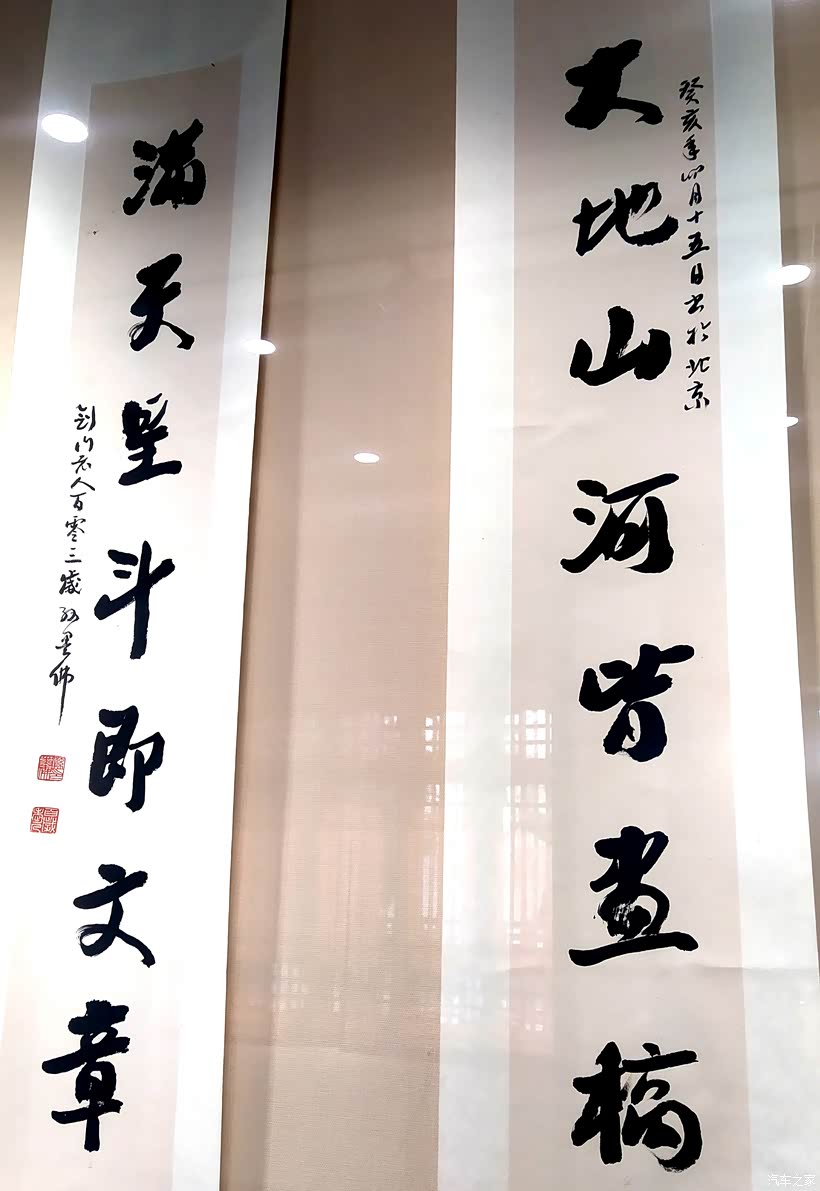 癸亥年四月十五日书於北京
大地山河皆畫稿
满天星斗即文章
剑门老人百零三歲孙墨佛
汽车之家